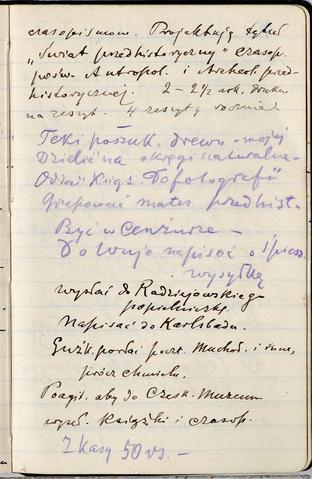 czasopismom. Projektuję tytuł
„Świat przedhistoryczny" czasop.
pośw. Antropol. i Archeol. przed-
historycznej. 2 – 2½ ark. druku
na zeszyt. 4 zeszyty rocznie
Teki poszuk. drewn - mojej
Dzielić na okręgi naturalne -
Oddać Książ. Do fotografii
Grupować mater. przedhist.
Być w Cenzurze -
Do Wuja napisać o śpiesz.
wysyłkę
wysłać do Radziejowskiego
popielniczkę
Napisać do Karlsbadu.
Guzk. poczt. Muchoł. i inne,
prócz chmielu.
aby do Czesk. Muzeum
wysł. książki i czasop.
Z kasy 50 rs. -